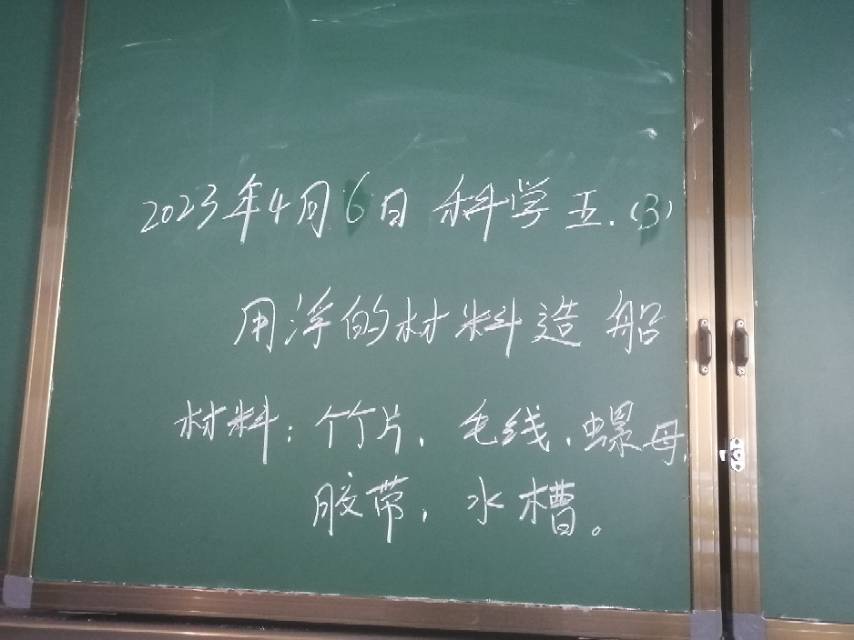 2023年4月6日 科学 五.(3)
用浮的材料造船
材料：竹片、毛线、螺母、
胶带、水槽。